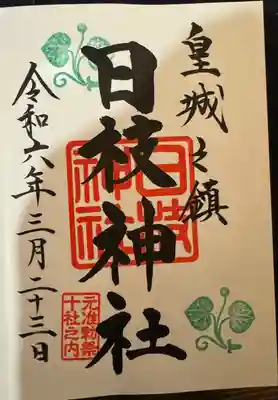 皇城之鎮
日枝神社
日枝神社
令和六年三月二十三日
元准勅祭
十社之内